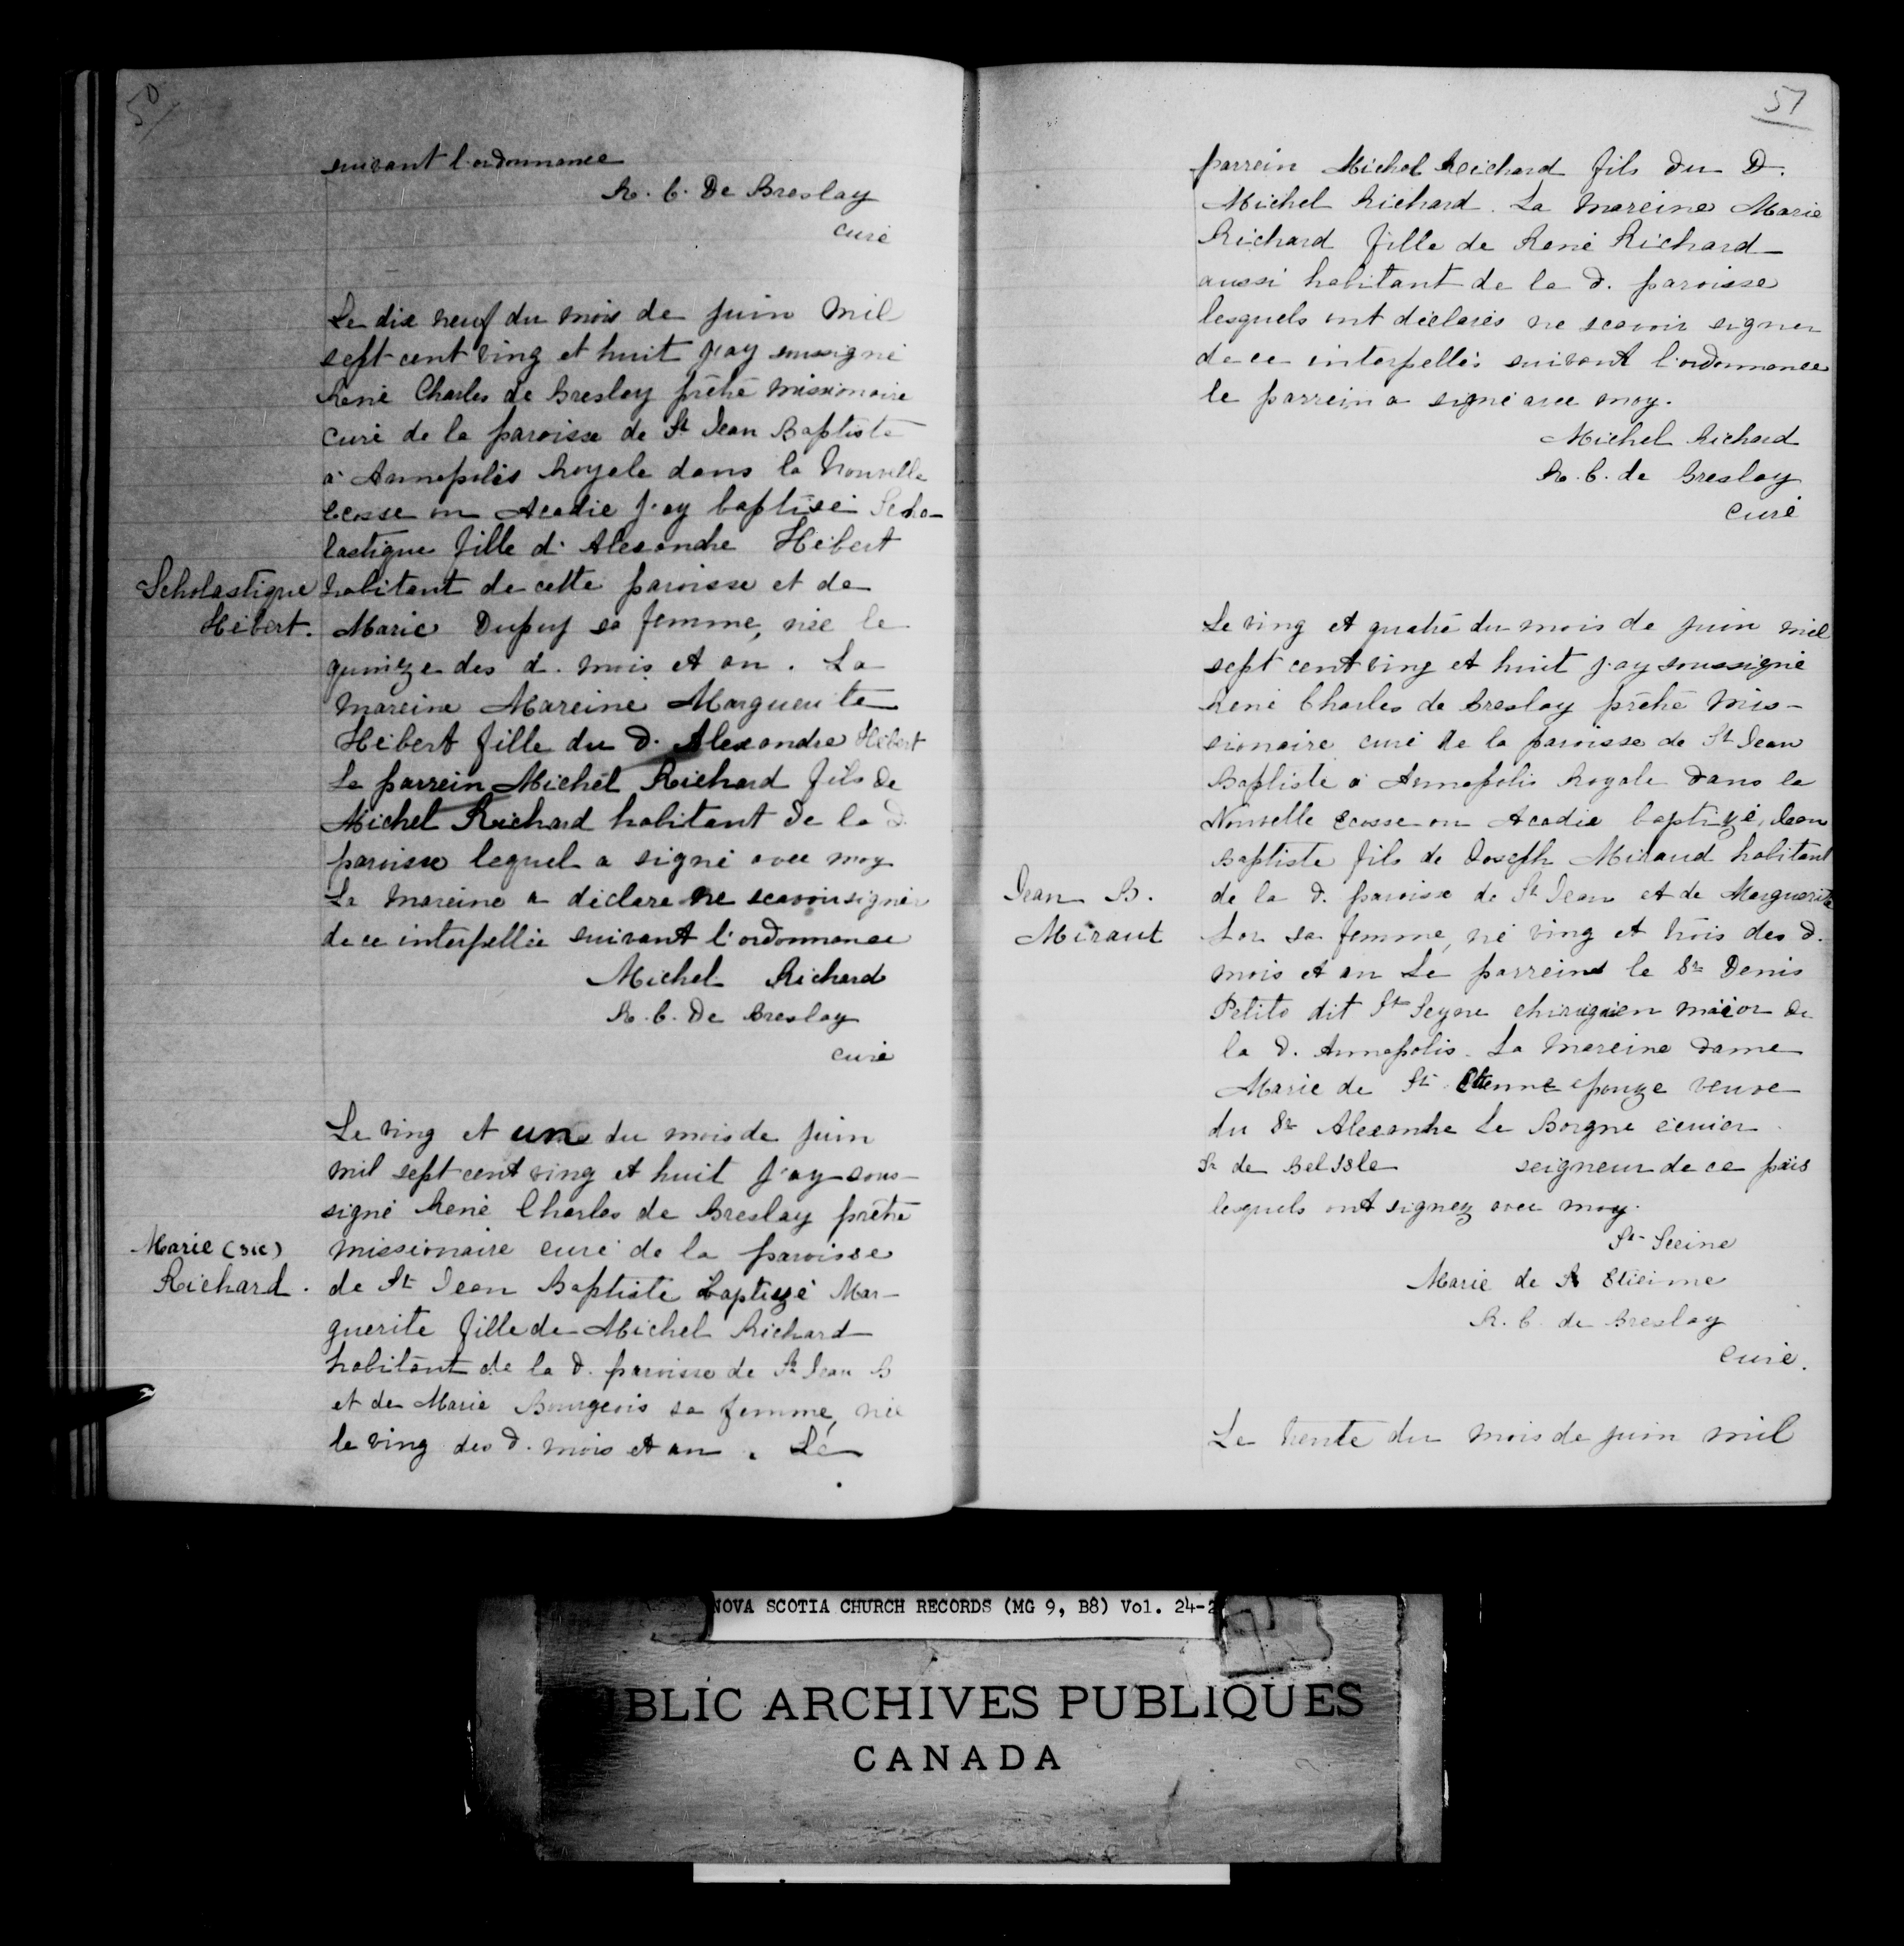 50
suivant l'ordonnance
R. C. De Breslay
curé
Le dix neuf du mois de juin mil
sept cent ving et huit j'ay soussigné
René Charles de Breslay prêtre missionaire
curé de la paroisse de St Jean Baptiste
à Annapolis Royale dans la Nouvelle
Ecosse ou Acadie j'ay baptisé Scho-
lastique fille d'Alexandre Hébert
Scholastique habitant de cette paroisse et de
Hébert. Marie Dupuy sa femme, née le
quinze des d. mois et an. La
mareine Mareine Marguerite
Hébert fille du d. Alexandre Hébert
Le parrein Michel Richard fils de
Michel Richard habitant de la d.
paroisse lequel a signé avec moy
La mareine a déclaré ne scavoir signer
de ce interpellée suivant l'ordonnance
Michel Richard
R. C. De Breslay
curé
Le ving et un du mois de juin
mil sept cent ving et huit j'ay sous-
signé René Charles de Breslay prêtre
Marie (sic) missionaire curé de la paroisse
Richard. de St Jean Baptiste baptizé Mar-
guerite fille de Michel Richard
habitant de la d. paroisse de St Jean B
et de Marie Bourgeois sa femme, née
le ving des d. mois et an. Le
51
parrein Michel Richard fils du D.
Michel Richard. La mareine Marie
Richard fille de René Richard
aussi habitant de la d. paroisse
lesquels ont déclarés ne scavoir signer
de ce interpellés suivant l'ordonnance
le parrein a signé avec moy.
Michel Richard
R. C. de Breslay
curé
Le ving et quatre du mois de juin mil
sept cent ving et huit j'ay soussigné
René Charles de Breslay prêtre mis-
sionaire curé de la paroisse de St Jean
Baptiste à Annapolis Royale dans la
Nouvelle Ecosse ou Acadie baptizé, Jean
Baptiste fils de Joseph Miraud habitant
Jean B. de la d. paroisse de St Jean et de Marguerite
Miraut sa femme, né ving et trois des d.
mois et an Le parrein le Sr Denis
Petito dit St Seyne chirugien maior de
la d. Annapolis. La mareine dame
Marie de St Etienne epouze veuve
du Sr Alexandre Le Borgne écuier
Sr de Bel Isle seigneur de ce païs
lesquels ont signez avec moy.
St Seine
Marie de St Etieinne
R. C. de Breslay
curé.
Le trente du mois de juin mil
NOVA SCOTIA CHURCH RECORDS (MG 9, B8) Vol. 24-2
BLIC ARCHIVES PUBLIQUES
CANADA